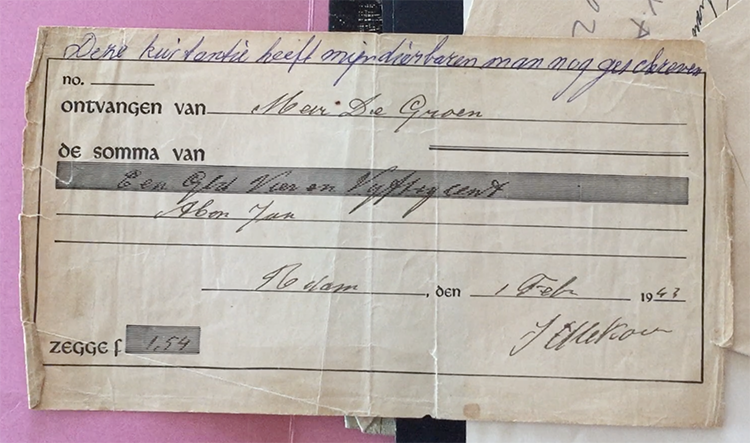 Deze kwitantie heeft mijn dierbaren man nog geschreven
no.
ontvangen van Mevr De Groen
de somma van
Een Gld Vier en Vijftig cent
Abon Jan
R dam, den 1 Feb 1943
zegge f 1,54